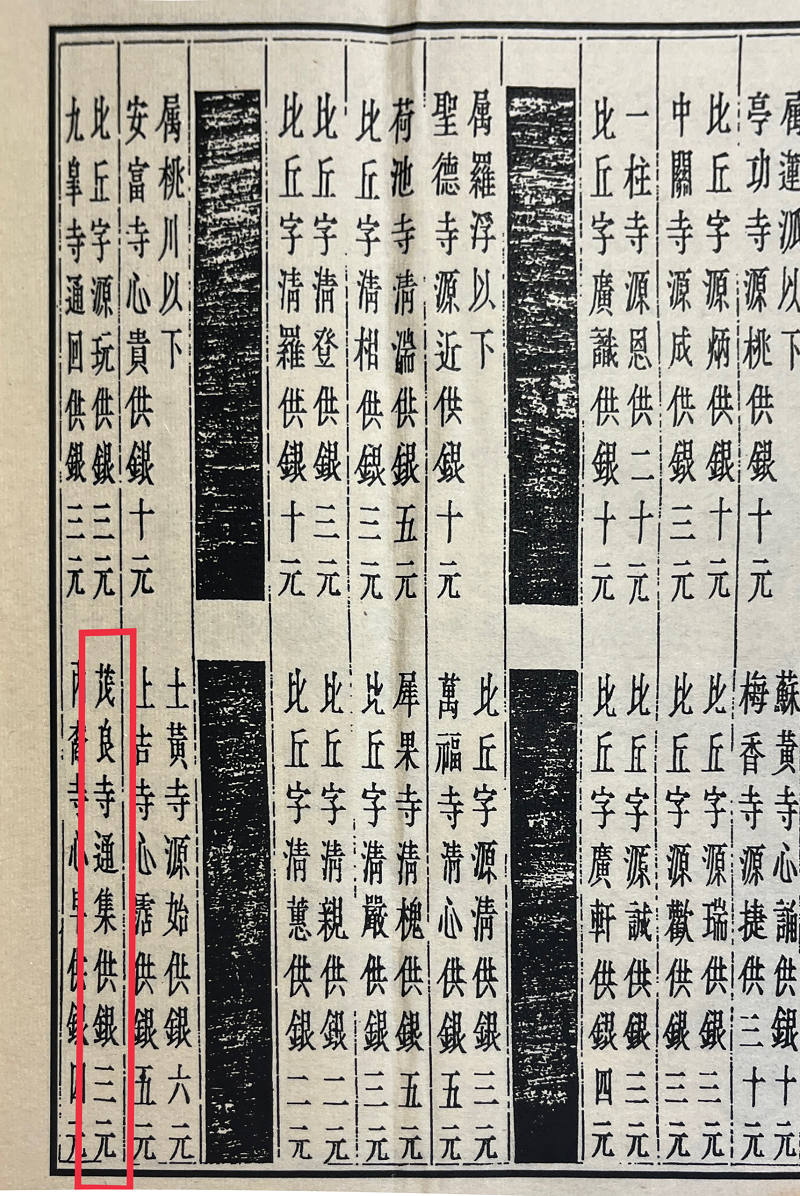 屬蓮派以下
亭功寺源桃供銀十元
比丘字源炳供銀十元
中關寺源成供銀三元
一柱寺源恩供二十元
比丘字廣識供銀十元
屬羅浮以下
聖德寺源近供銀十元
荷池寺清湍供銀五元
比丘字清相供銀三元
比丘字清登供銀三元
比丘字清羅供銀十元
屬桃川以下
安富寺心貴供銀十元
比丘字源玩供銀三元
九皐寺通回供銀三元
蘇黃寺心誦供銀十元
梅香寺源捷供三十元
比丘字源瑞供銀三元
比丘字源歡供銀三元
比丘字源誠供銀三元
比丘字廣軒供銀四元
比丘字源清供銀三元
萬福寺清心供銀五元
犀果寺清槐供銀五元
比丘字清嚴供銀三元
比丘字清親供銀二元
比丘字清蕙供銀二元
土黃寺源始供銀六元
上吉寺心霑供銀五元
茂良寺通集供銀三元
寺心供銀四元